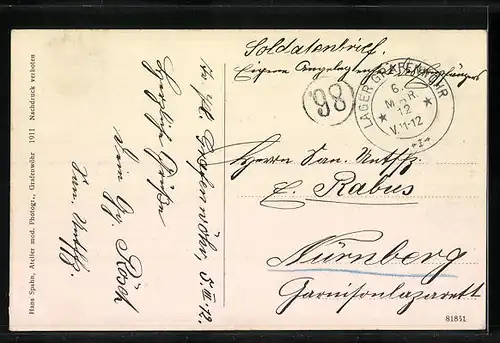 Hans Spahn, Atelier mod. Photogr., Grafenwöhr 1911 Nachdruck verboten
Grafenwöhr, 5. III. 12.
Herzliche Grüße
Dein Gg. Rösch
San. Untffz.
Soldatenbrief.
Eigene Angelegenheit des Empfängers
98
LAGER GRAFENWÖHR
6.
MÄR.
12
V.11-12
*I*
Herrn San. Untffz.
E. Rabus
Nürnberg
Garnisonlazarett
81851